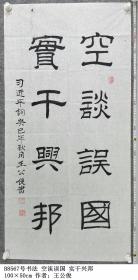 空談誤國
實干興邦
习近平词癸巳年秋月王公俊書
88567号书法 空谈误国 实干兴邦
100×50cm 作者：王公俊